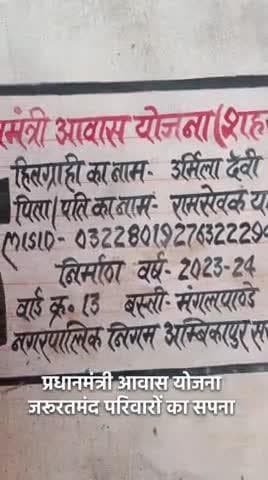 मंत्री आवास योजना (शह
हितग्राही का नाम- उर्मिला देवी
पिता/पति का नाम- रामसेवक या
MISID- 032280192763222294
निर्माण वर्ष- 2023-24
वार्ड क्र. 13 बस्ती- मंगलपाण्डे
नगरपालिक निगम अम्बिकापुर सर
प्रधानमंत्री आवास योजना
जरूरतमंद परिवारों का सपना